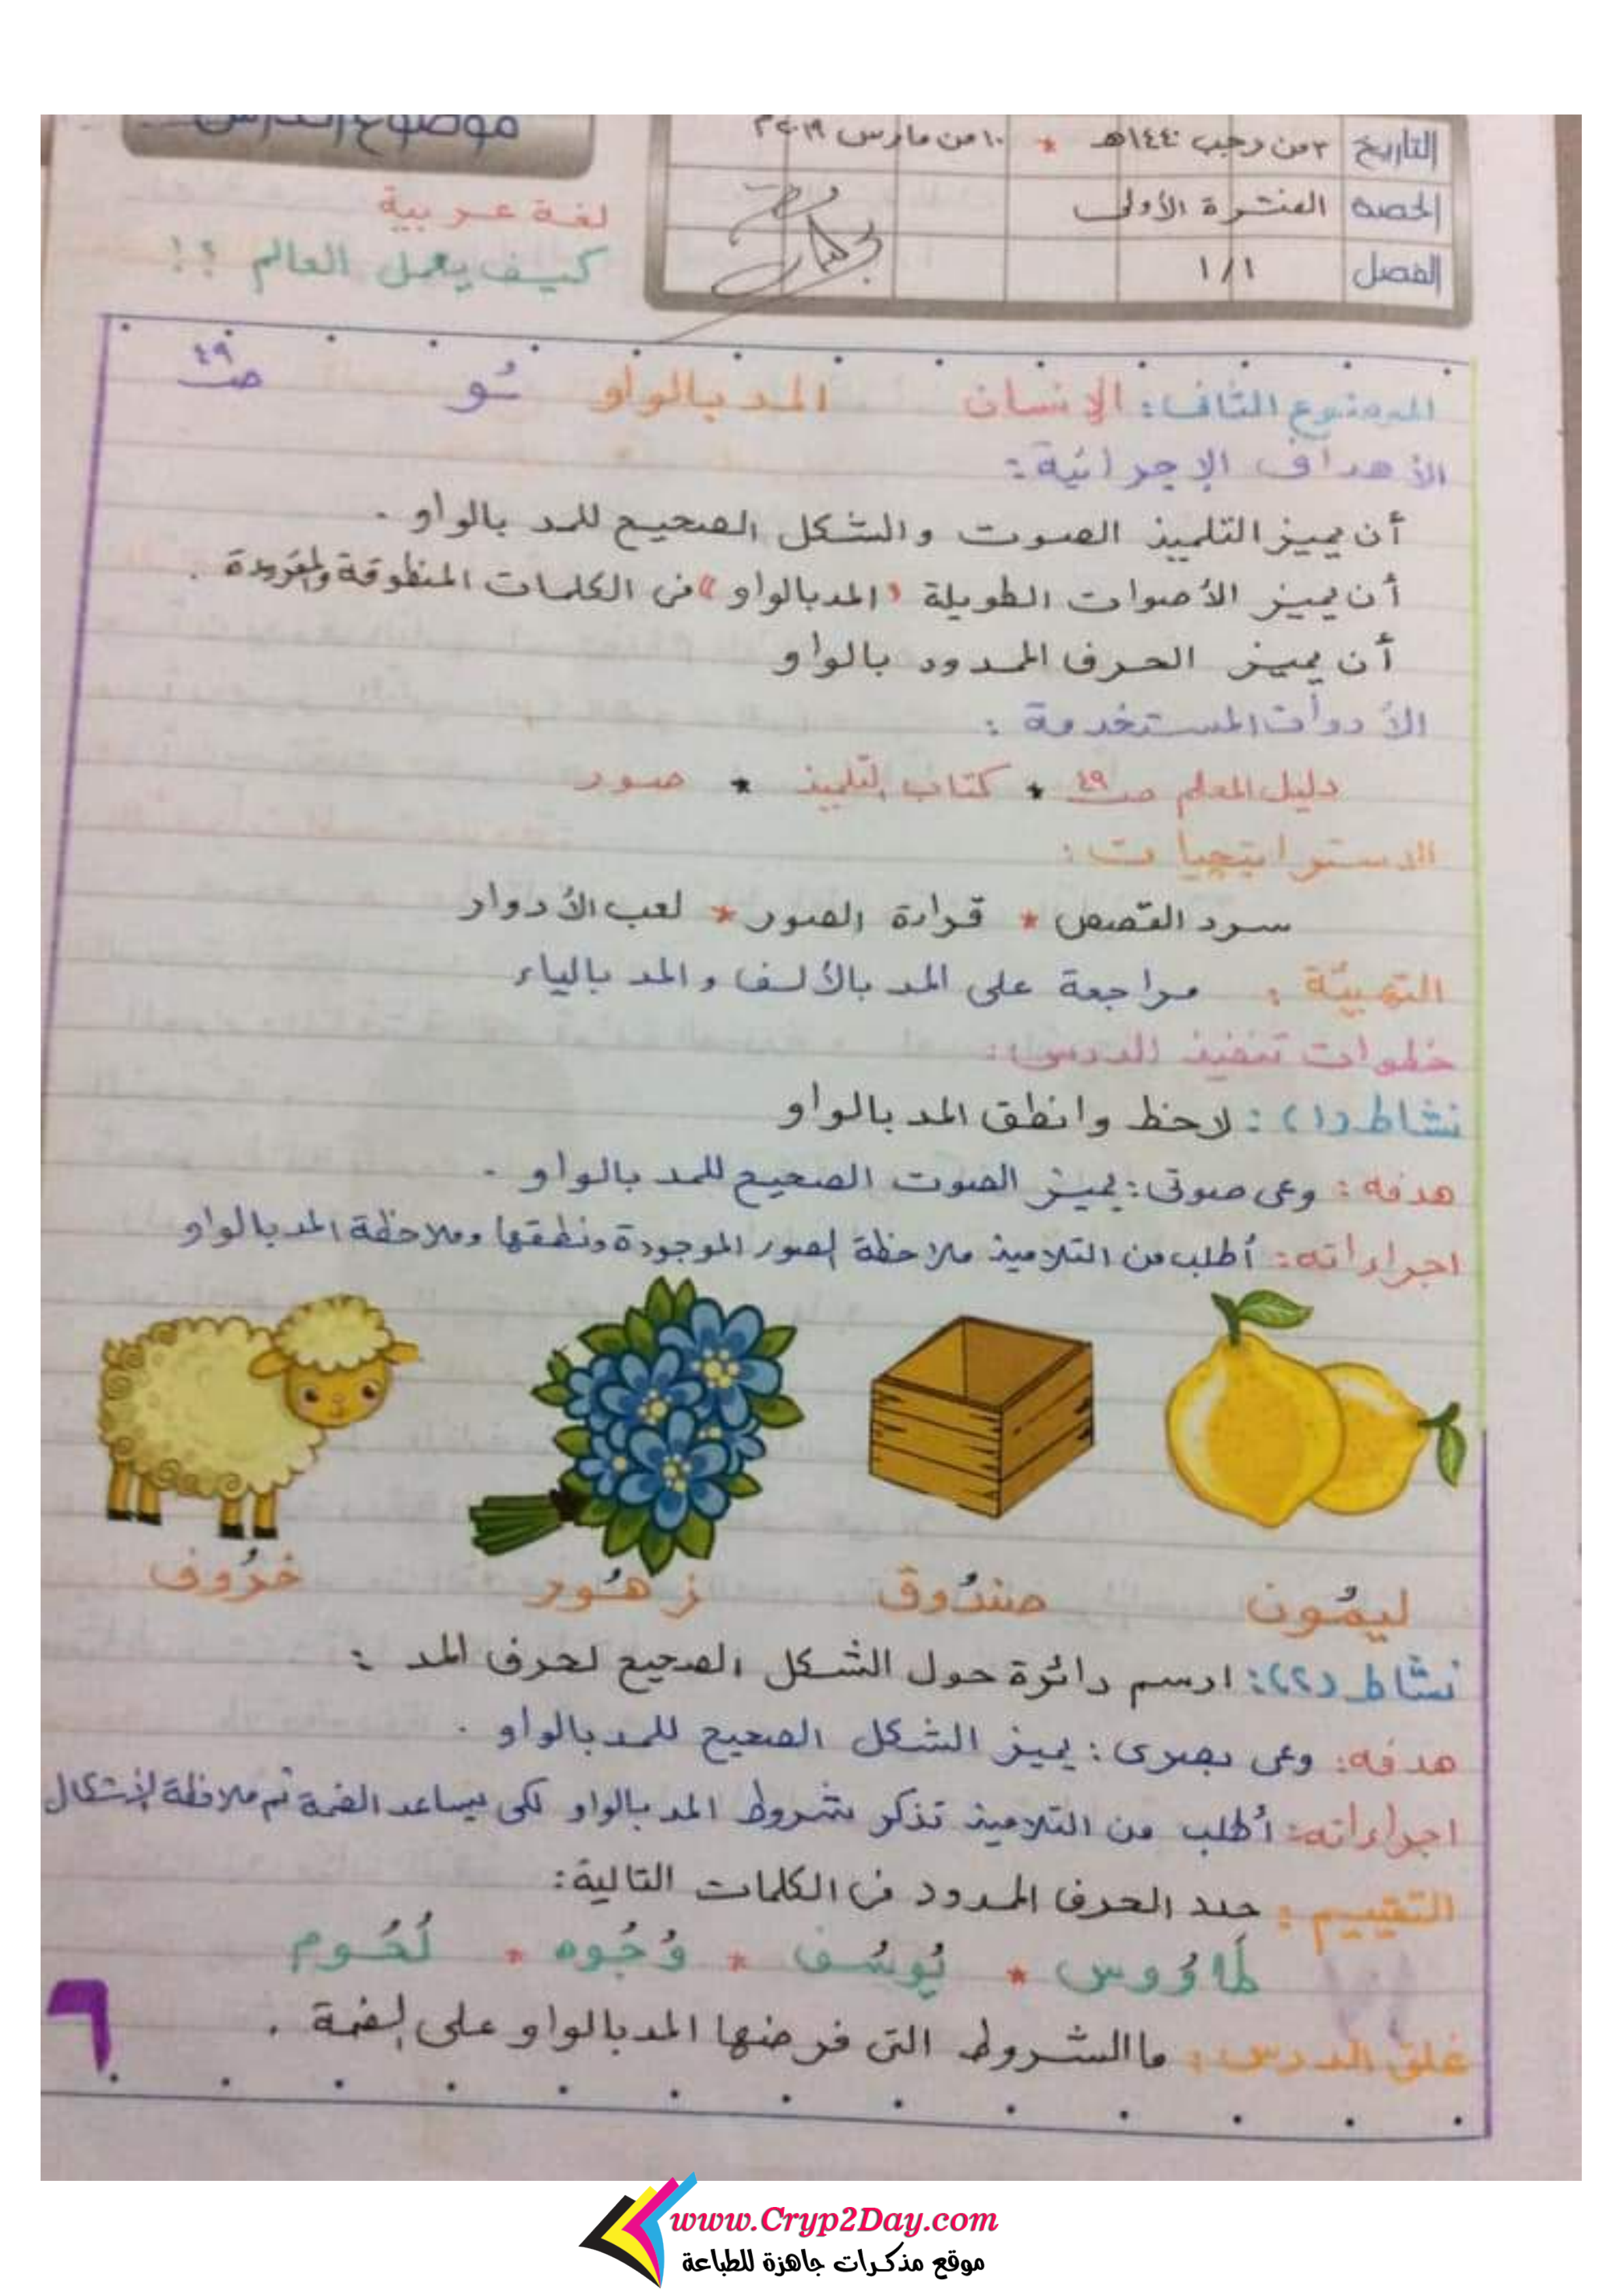 موضوع الدرس
التاريخ ٣ من رجب ١٤٤٠هـ * ١٠ من مارس ٢٠١٩م
الحصة الفترة الأولى
الفصل ١/١
لغة عربية
كيف يعمل العالم ؟!
الموضوع الثانى: الإنسان المد بالواو ـُو ص٤٩
الأهداف الإجرائية:
أن يميز التلميذ الصوت والشكل الصحيح للمد بالواو .
أن يميز الأصوات الطويلة "المد بالواو" فى الكلمات المنطوقة
أن يميز الحرف الممدود بالواو
الأدوات المستخدمة :
دليل المعلم ص٤٩ * كتاب التلميذ * صور
الاستراتيجيات:
سرد القصص * قراءة الصور * لعب الأدوار
التهيئة : مراجعة على المد بالألف والمد بالياء
خطوات تنفيذ الدرس:
نشاط (١): لاحظ وانطق المد بالواو
هدفه: وعى صوتى: يميز الصوت الصحيح للمد بالواو .
اجراءاته: أطلب من التلاميذ ملاحظة الصور الموجودة ونطقها وملاحظة المد بالواو
ليمُون صندُوق زهُور خرُوف
نشاط (٢): ارسم دائرة حول الشكل الصحيح لحرف المد :
هدفه: وعى بصرى: يميز الشكل الصحيح للمد بالواو .
اجراءاته: أطلب من التلاميذ تذكر شروط المد بالواو لكى يساعد الضمة ثم ملاحظة الأشكال
التقييم : حدد الحرف الممدود فى الكلمات التالية:
طَاوُوس * يُوسُف * وُجُوه * لُحُوم
غلق الدرس: ما الشروط التى فرضها المد بالواو على الضمة .
٦
www.Cryp2Day.com
موقع مذكرات جاهزة للطباعة